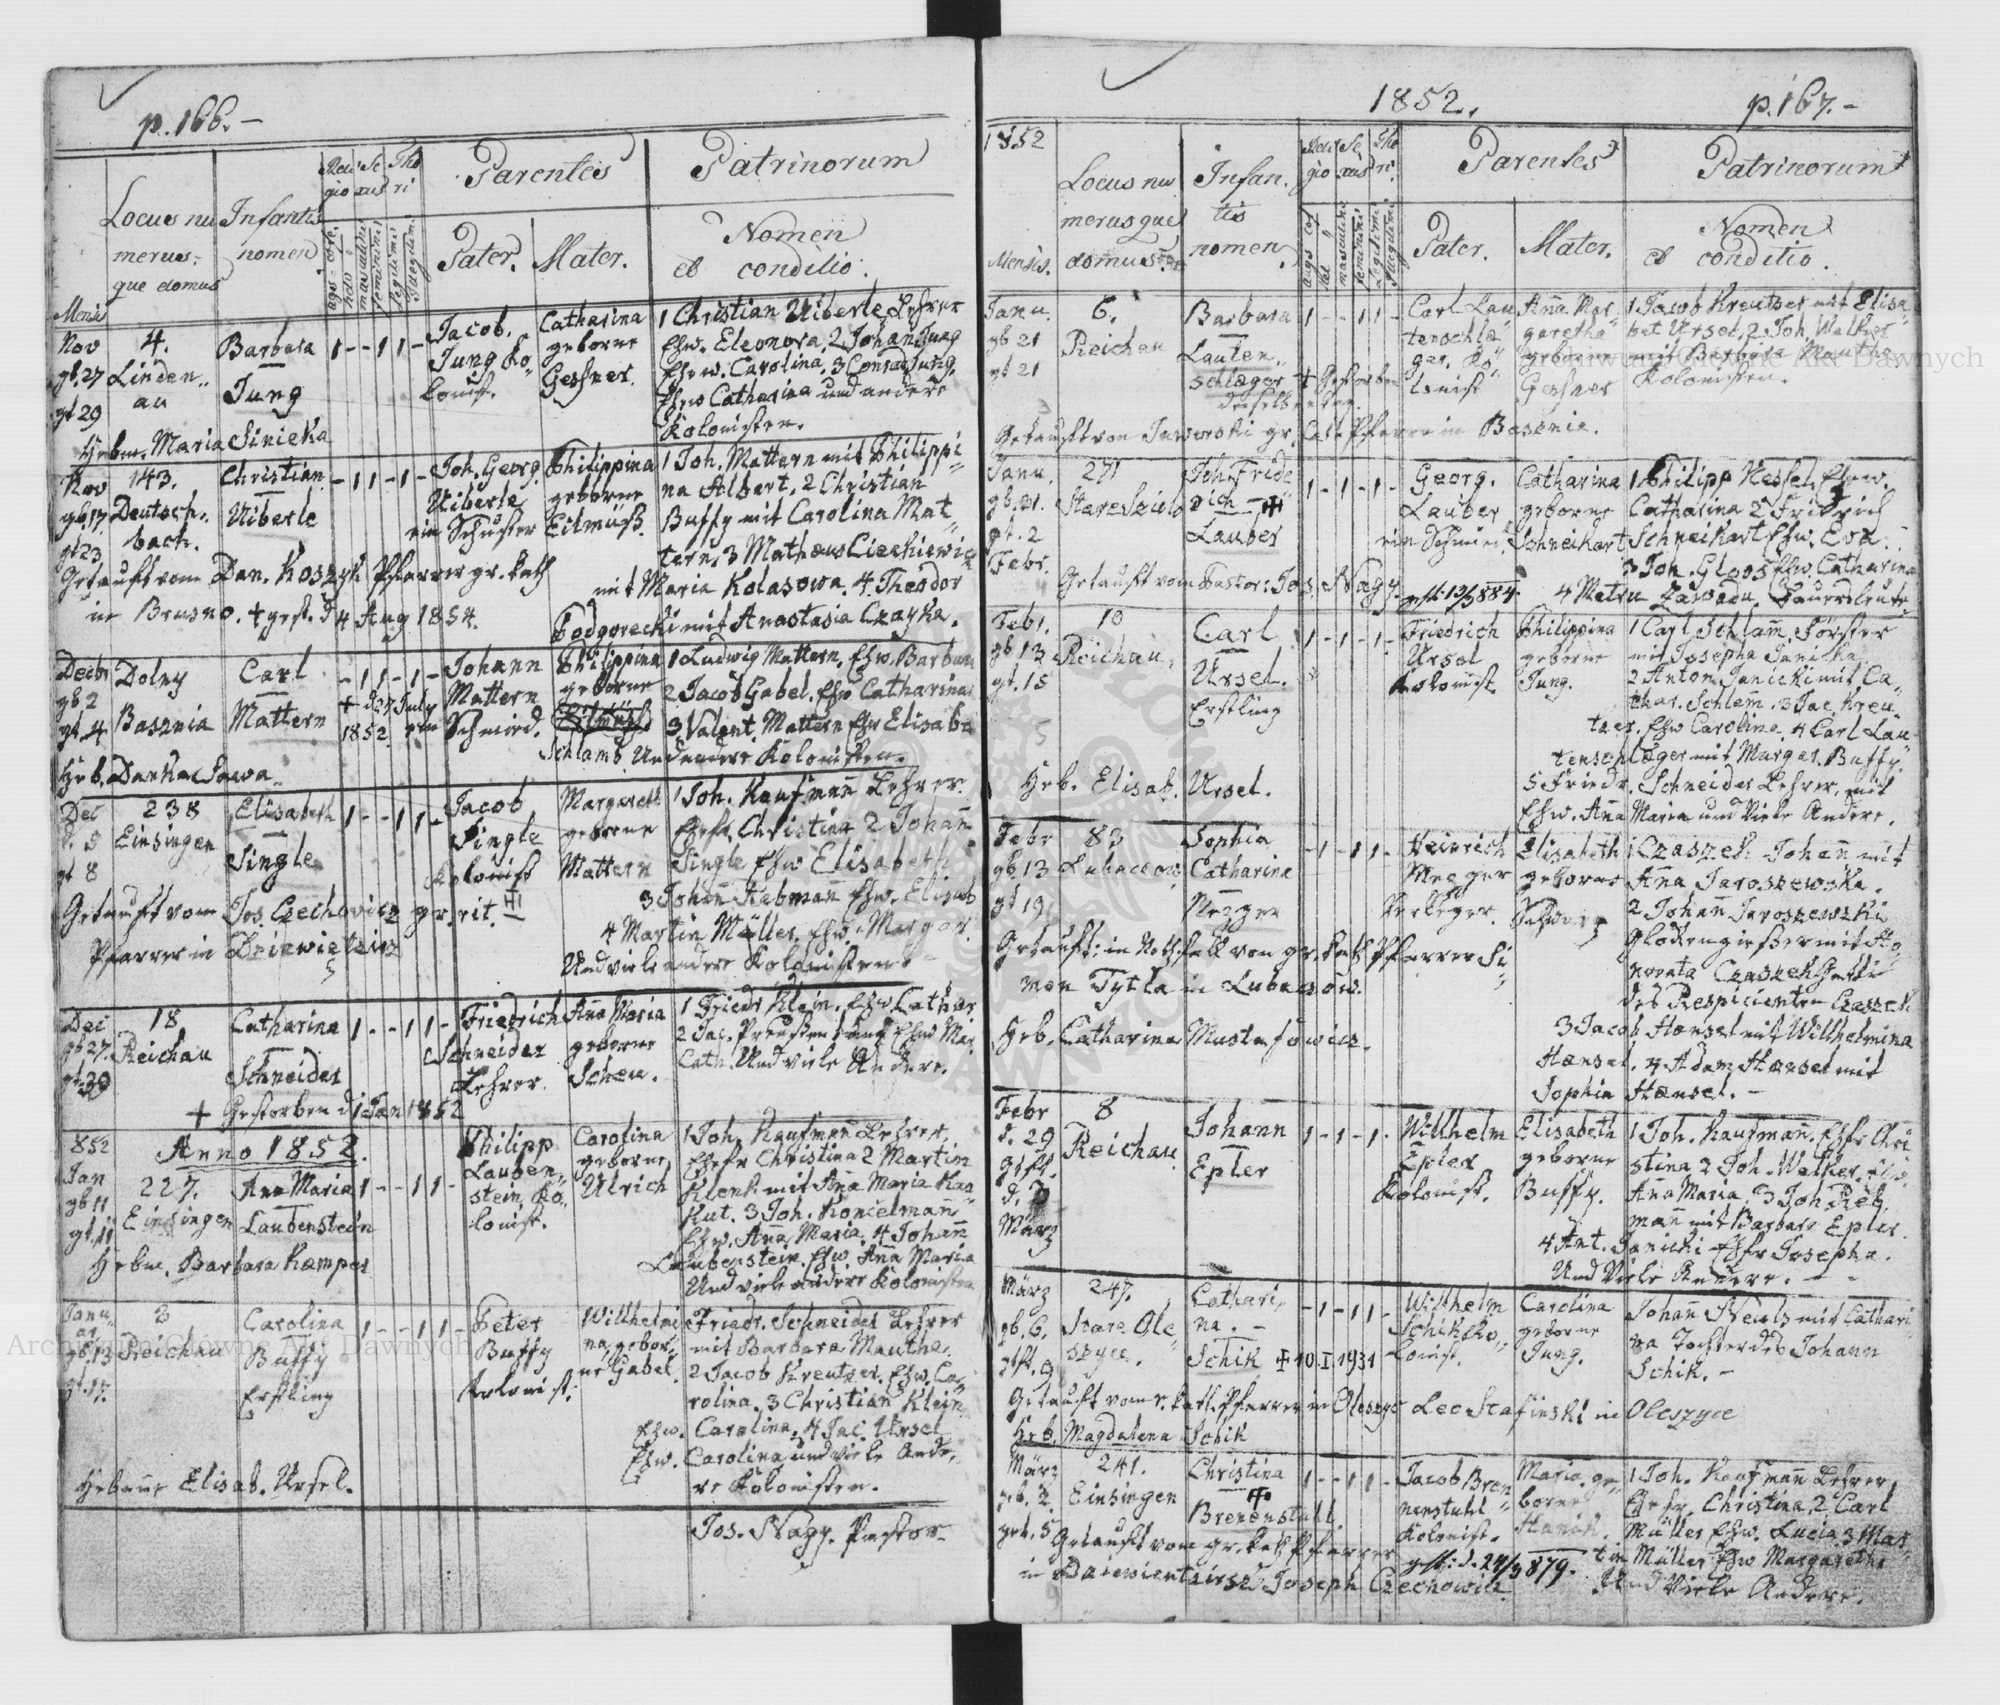 p. 166. –
Locus nu
merus-
que domus
Infantis
nomen
Reli
gio
Se
xus
Tho
ri
Parentes
Patrinorum
Pater.
Mater.
Nomen
et conditio.
Mensis
Nov
gb. 27
gt 29
4.
Linden„
au
Barbara
Jung
1 - - 1 1 -
Jacob.
Jung Ko„
lonist.
Catharina
geborne
Gesner.
1 Christian Uiberle Lehrer
Ehw. Eleonora, 2 Johan Jung
Ehew. Carolina, 3 Conrad Jung,
Ehew Catharina und andere
Kolonisten.
Hebm. Maria Sinicka
Nov
gb. 17
gt 23
143.
Deutsch„
bach.
Christian
Uiberle
- 1 1 - 1 -
Joh. Georg.
Uiberle
ein Schuster
Philippina
geborne
Eilmüß.
1 Joh. Mattern mit Philippi-
na Albert, 2 Christian
Buffy mit Carolina Mat„
tern, 3 Matheus Ciechiewicz
mit Maria Kolasowa. 4. Theodor
Podgorecki mit Anastasia Czayka.
Getauft vom Dan. Koszyk Pfarrer gr. kath
in Brusno. + gest. d 4 Aug 1854.
Decbr
gb 2
gt 4
Dolny
Basznia
Carl
Mattern
- 1 1 - 1 -
+ d 27 July
1852.
Johann
Mattern
ein Schmied.
Philippina
geborne
Schlamb
1 Ludwig Mattern, Ehw. Barbara
2 Jacob Gabel. Ehw Catharina
3. Valent. Mattern Ehw Elisabe
Und andere Kolonisten.
Heb. Danka Sawa„
Dec
d. 5
gt 8
238
Einsingen
Elisabeth
Single
1 - - 1 1 -
Jacob
Single
Kolonist
Margareth
geborne
Mattern
1 Joh. Kaufmañ Lehrer.
Ehefr. Christina 2 Johañ
Single Ehw Elisabeth
3 Johañ Rebmañ Ehw. Elisab
4 Martin Müller. Ehw. Margar.
Und viele andere Kolonisten.
Getauft vom Jos. Czechovicz gr. rit.
Pfarrer in Dziewiętzirz
Dec
gb 27.
gt. 30
18
Reichau
Catharina
Schneider
1 - - 1 1 -
Friedrich
Schneider
Lehrer.
Aña Maria
geborne
Scheu.
1 Friedr. Klein, Ehw. Cathar
2 Jac. Ehw Mar.
Cath. Und viele Andere.
+ Gestorben d 1 Jan 1852
852
Anno 1852.
Jan
gb 11
gt. 11
227.
Einsingen
Aña Maria
Laubenstein
1 - - 1 1 -
Philipp
Lauben„
stein, Ko„
lonist.
Carolina
geborne
Ulrich
1 Joh. Kaufmañ Lehrer,
Ehefr Christina 2 Martin
Klenk mit Aña Maria Kas
Kut. 3 Joh. Konzelmañ
Ehw. Aña Maria. 4 Johañ
Laubenstein. Ehw. Aña Maria
Und viele andere Kolonisten
Hebm. Barbara Kemper
Janu„
ar
gb. 13
gt. 17.
3
Reichau
Carolina
Buffy
Erstling
1 - - 1 1 -
Peter
Buffy
Kolonist.
Willhelmi
na, gebor„
ne Gabel.
Friedr. Schneider Lehrer
mit Barbara Mauthe.
2 Jacob Kreutzer. Ehw. Ca„
rolina, 3 Christian Klein
Ehw. Carolina, 4 Jac. Ursel
Ehw. Carolina und viele Ande„
re Kolonisten.
Hebamme Elisab. Ursel.
Jos. Nagy. Pastor.
1852.
p. 167. –
1852
Mensis.
Locus nu
merusque
domus.
Infan.
tis
nomen.
Reli
gio
Se
xus
Tho
ri.
Parentes
Patrinorum
Pater.
Mater.
Nomen
et conditio.
Janu.
gb 21
gt 21
6.
Reichau
Barbara
Lauten„
schlæger
1 - - 1 1 -
+ Gestorben
denselben Tag.
Carl Lau
tenschlä„
ger. Ko„
lonist
Aña Mar
garetha
geborne
Gesner
1 Jacob Kreutzer mit Elisa„
bet Ursel, 2. Joh. Walker
mit Barbara Mauthe
Kolonisten.
Getauft von Jaworski gr. Cat. Pfarrer in Basznie.
Janu.
gb. 31.
gt. 2
Febr.
271
Staresziolo
Joh. Fride
rich
Lauber
1 - 1 - 1 -
Georg.
Lauber
ein Schmied
Catharina
geborne
Schneikart
1 Philipp Kessel, Ehw.
Catharina 2 Fridrich
Schneikart Ehw. Eva.
3 Joh. Gloos Ehw. Catharina
4 Metru Zawadu. Bauersleute
Getauft vom Pastor: Jos. Nagy.
gest. 13/3 884.
Feb 1.
gb 13
gt. 15
10
Reichau,
Carl
Ursel.
Erstling
1 - 1 - 1 -
Friedrich
Ursel
Kolonist
Philippina
geborne
Jung.
1 Carl Schlam̃, Förster
mit Josepha Janicka,
2 Anton Janicki mit Ca„
thar. Schlem. 3 Jac. Kreu„
tzer, Ehw Carolina, 4 Carl Lau„
tenschlæger mit Margar. Buffy.
5 Friedr. Schneider Lehrer, mit
Ehw. Aña Maria und Viele Andere.
Heb. Elisab. Ursel.
Febr
gb. 13
gt 19
83
Lubaczow
Sophia
Catharina
Mezger
- 1 - 1 1 -
Heinrich
Mezger
Verleger.
Elisabeth
geborne
1 Czaszek Johañ mit
Aña Jaroszewska.
2 Johañ Jaroszewski
Glokengießer mit Ho„
norata Czaszek Gatti
des Respicienten Czaszek
3 Jacob Hænsel mit Willhelmina
Hænsel. 4 Adam Hænsel mit
Sophia Hænsel. –
Getauft: in Nothfall von gr. kath Pfarrer Si„
mon Tytla in Lubaczow.
Heb. Catharina Mustafowicz.
Febr
d. 29
getft.
d. 7
März
8
Reichau
Johann
Epler
1 - 1 - 1 -
Willhelm
Epler
Kolonist.
Elisabeth
geborne
Buffy.
1 Joh. Kaufmañ. Ehfr Chri
stina 2 Joh. Walker. Ehw.
Aña Maria 3 Joh. Reb„
mañ mit Barbara Epler.
4 Ant. Janicki Ehfr Josepha.
Und Viele Andere. –
März
gb. 6.
getft. 9
247.
Stare Ole„
szyce.
Cathari„
na. –
Schik + 10. I. 1931
- 1 - 1 1 -
Willhelm
Schik Ko„
lonist.
Carolina
geborne
Jung.
Johañ mit Cathari„
na Tochter des Johañ
Schik. –
Getauft vom r. kath. Pfarrer in Oleszyc Leo Stafinski in Oleszyce
Heb. Magdalena Schik
März
geb. 2.
get. 5
241.
Einsingen
Christina
Brenenstull
1 - - 1 1 -
Jacob Bren
nenstuhl
Kolonist.
Maria. ge„
borne
Hanák.
1 Joh. Kaufmañ Lehrer,
Ehefr. Christina, 2 Carl
Müller Ehw. Lucia, 3 Mar„
tin Müller Ehw Margarethe
Und Viele Andere.
Getauft vom gr. kath Pfarrer
in Dziewientzirz Joseph Czechowicz
gest: d. 24/3 879.
Archiwum Główne Akt Dawnych